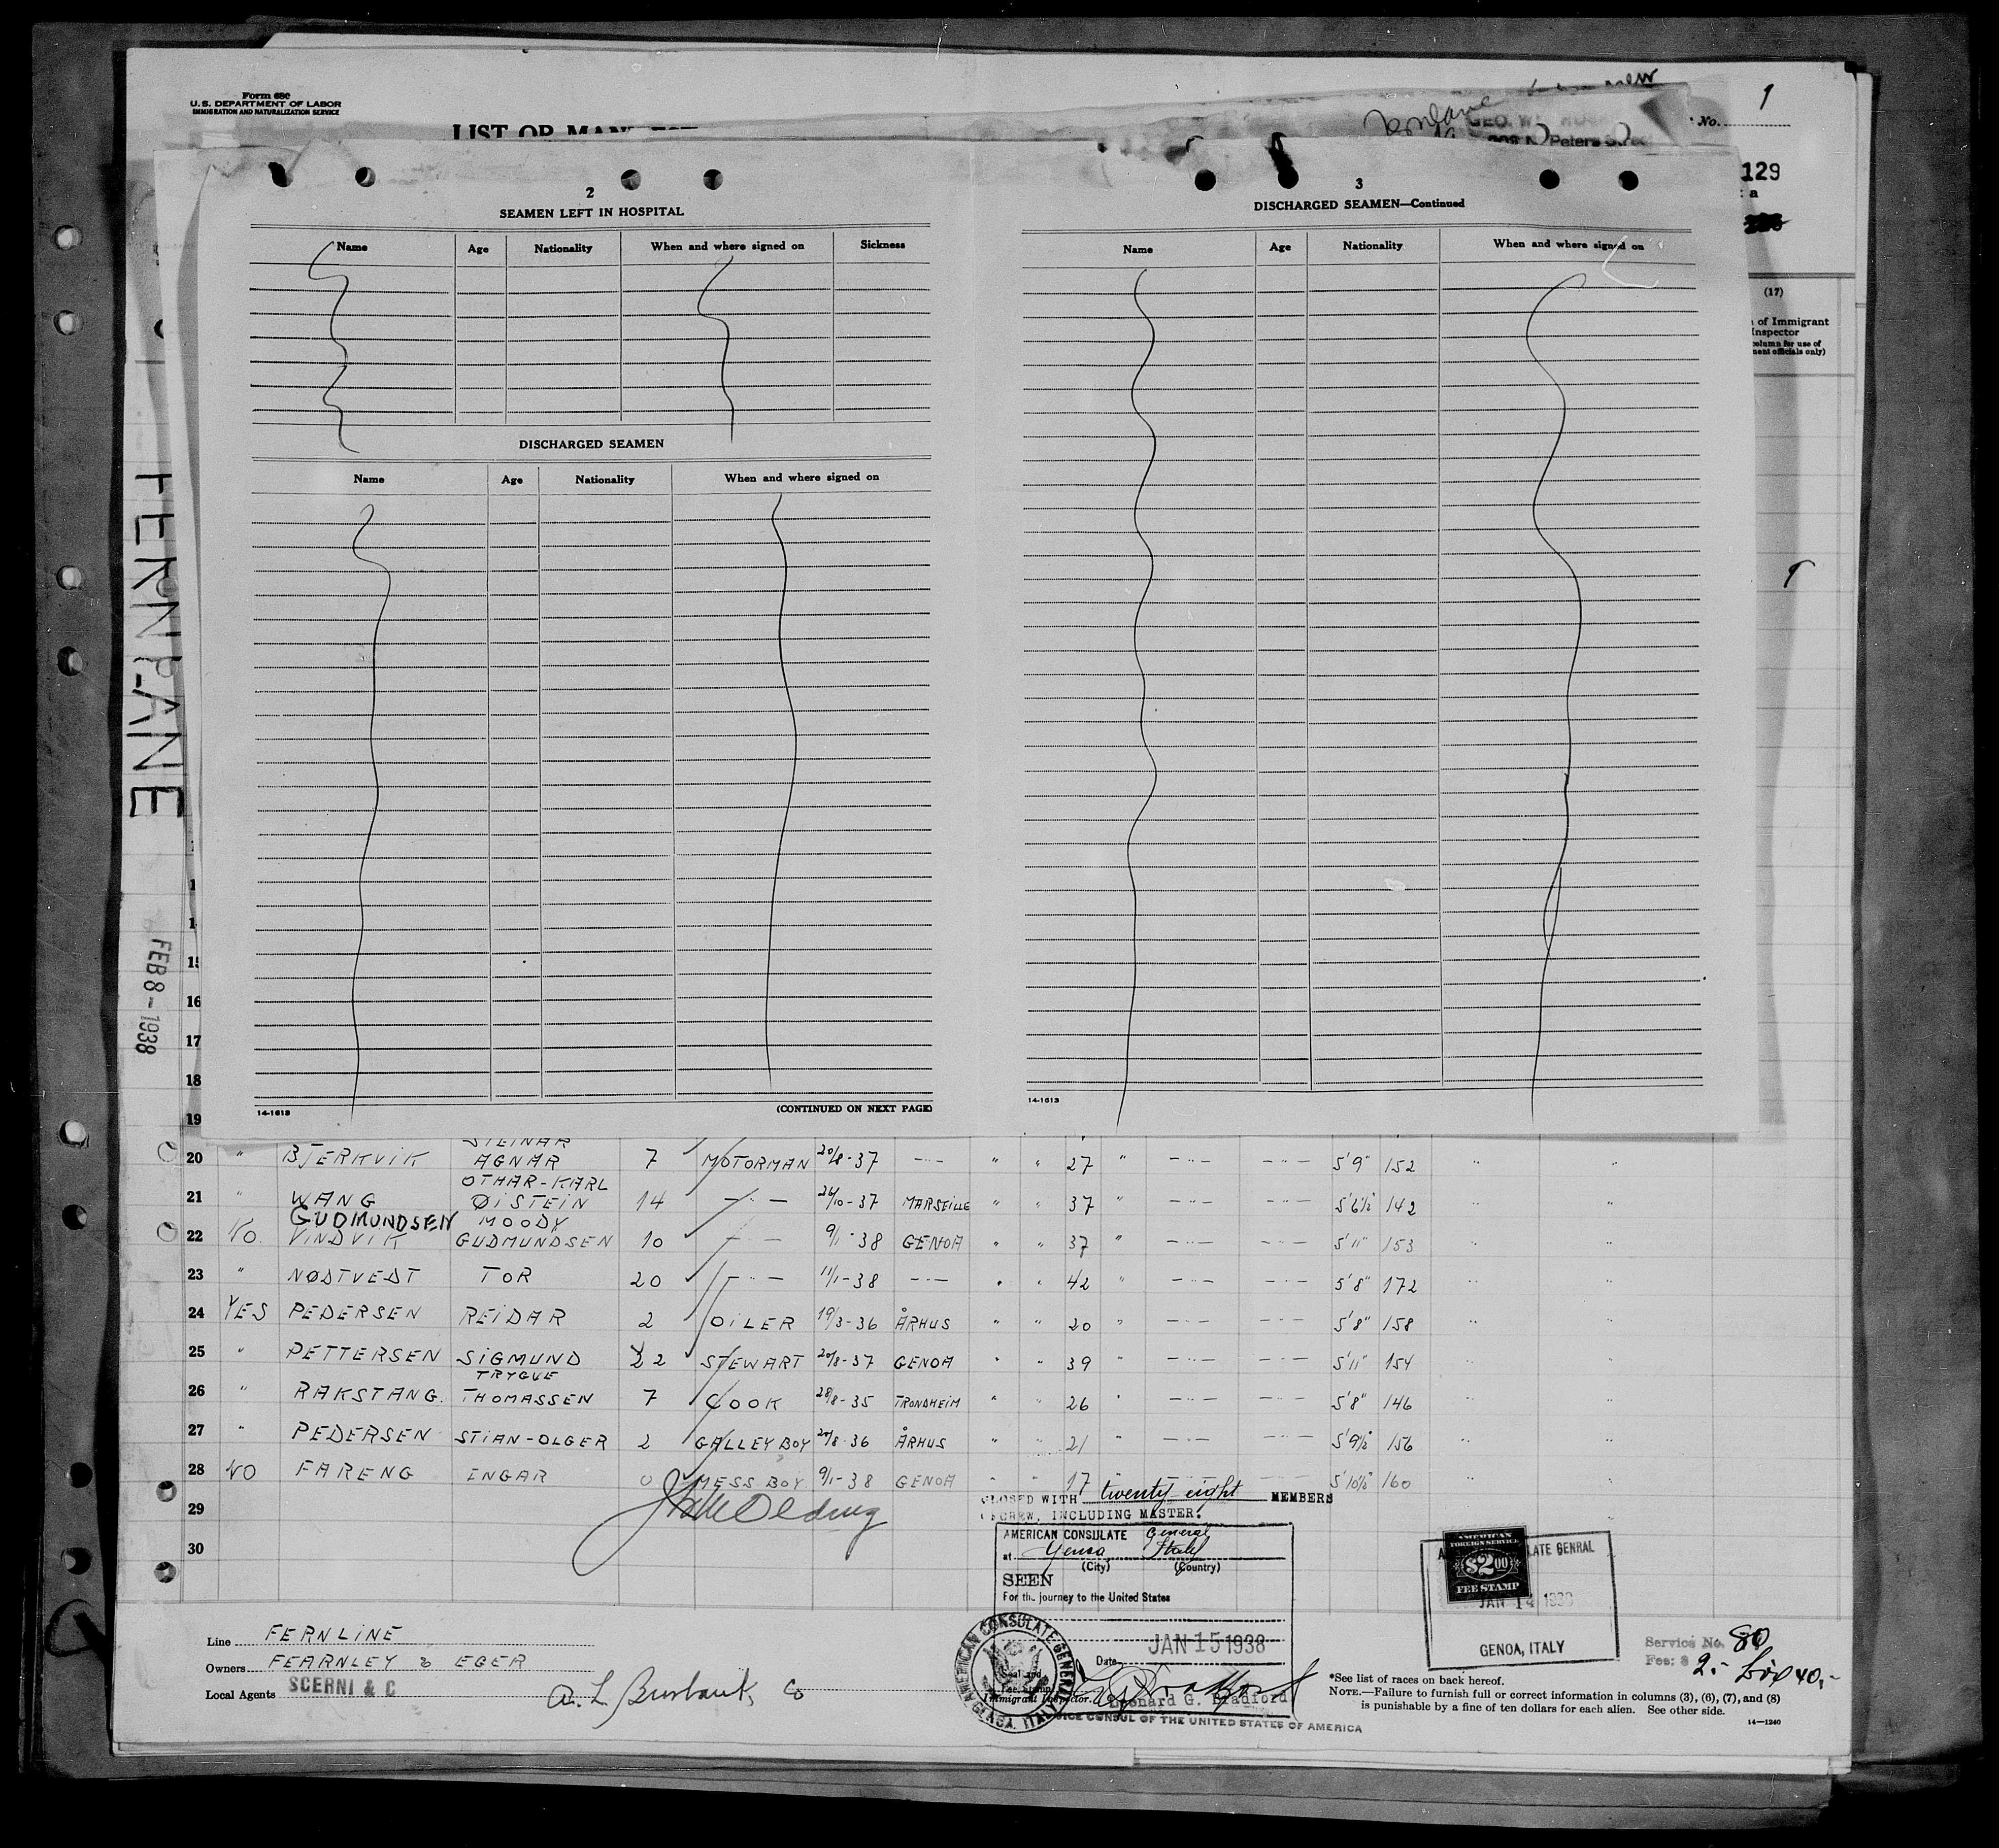 Form 680
U.S. DEPARTMENT OF LABOR
IMMIGRATION AND NATURALIZATION SERVICE
LIST OR
GEO. W.
Peters
No.
1
129
FERNLANE
FEB 8 - 1938
(17)
of Immigrant
Inspector
column for use of
officials only)
2
SEAMEN LEFT IN HOSPITAL
Name Age Nationality When and where signed on Sickness
DISCHARGED SEAMEN
Name Age Nationality When and where signed on
14-1613 (CONTINUED ON NEXT PAGE)
3
DISCHARGED SEAMEN—Continued
Name Age Nationality When and where signed on
14-1613
15
16
17
18
19
STEINAR
20 " BJERKVIK AGNAR 7 MOTORMAN 20/8-37 -"- " " 27 " -"- -"- 5'9" 152 " "
OTHAR-KARL
21 " WANG ØISTEIN 14 -"- 26/10-37 MARSEILLE " " 37 " -"- -"- 5'6½ 142 " "
GUDMUNDSEN MOODY
22 NO. VINDVIK GUDMUNDSEN 10 -"- 9/1-38 GENOA " " 37 " -"- -"- 5'11" 153 " "
23 " NØDTVEDT TOR 20 -"- 11/1-38 -"- " " 42 " -"- -"- 5'8" 172 " "
24 YES PEDERSEN REIDAR 2 OILER 19/3-36 ÅRHUS " " 20 " -"- -"- 5'8" 158 " "
25 " PETTERSEN SIGMUND 22 STEWART 20/8-37 GENOA " " 39 " -"- -"- 5'11" 154 " "
TRYGVE
26 " RAKSTANG. THOMASSEN 7 COOK 28/8-35 TRONDHEIM " " 26 " -"- -"- 5'8" 146 " "
27 " PEDERSEN STIAN-OLGER 2 GALLEY BOY 24/8-36 ÅRHUS " " 21 " -"- -"- 5'9½" 156 " "
28 NO FARENG INGAR 0 MESS BOY 9/1-38 GENOA " " 17 " -"- -"- 5'10½" 160 " "
29
30
CLOSED WITH twenty-eight MEMBERS
CREW, INCLUDING MASTER.
AMERICAN CONSULATE General
at Genoa Italy
(City) (Country)
SEEN
For the journey to the United States
JAN 15 1938
Date
Leonard G. Bradford
VICE CONSUL OF THE UNITED STATES OF AMERICA
AMERICAN CONSULATE GENERAL
GENOA, ITALY
Immigrant Inspector.
AMERICAN
FOREIGN SERVICE
$2.00
FEE STAMP
LATE GENRAL
JAN 14 1938
GENOA, ITALY
Service No. 80
Fee: $ 2.-
Line FERNLINE
Owners FEARNLEY & EGER
Local Agents SCERNI & C
A. L. Burbank, Co
*See list of races on back hereof.
NOTE.—Failure to furnish full or correct information in columns (3), (6), (7), and (8)
is punishable by a fine of ten dollars for each alien. See other side.
14—1240